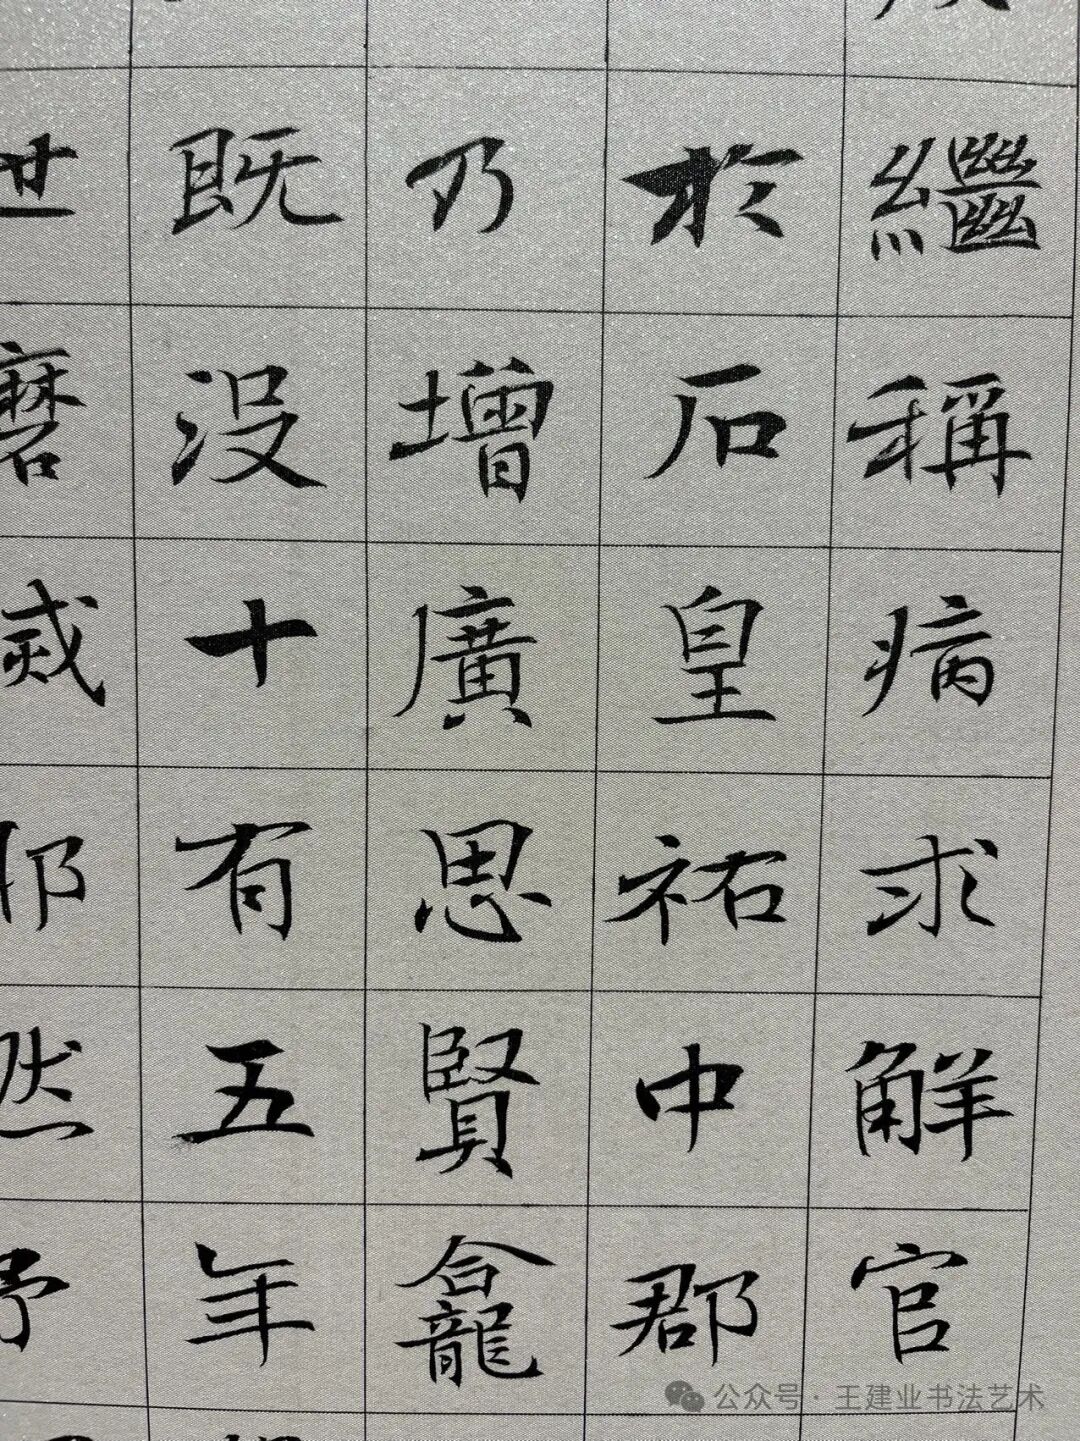 繼稱病求解官
於石皇祐中郡
乃增廣思賢龕
既没十有五年
世磨滅邪然予
公众号·王建业书法艺术